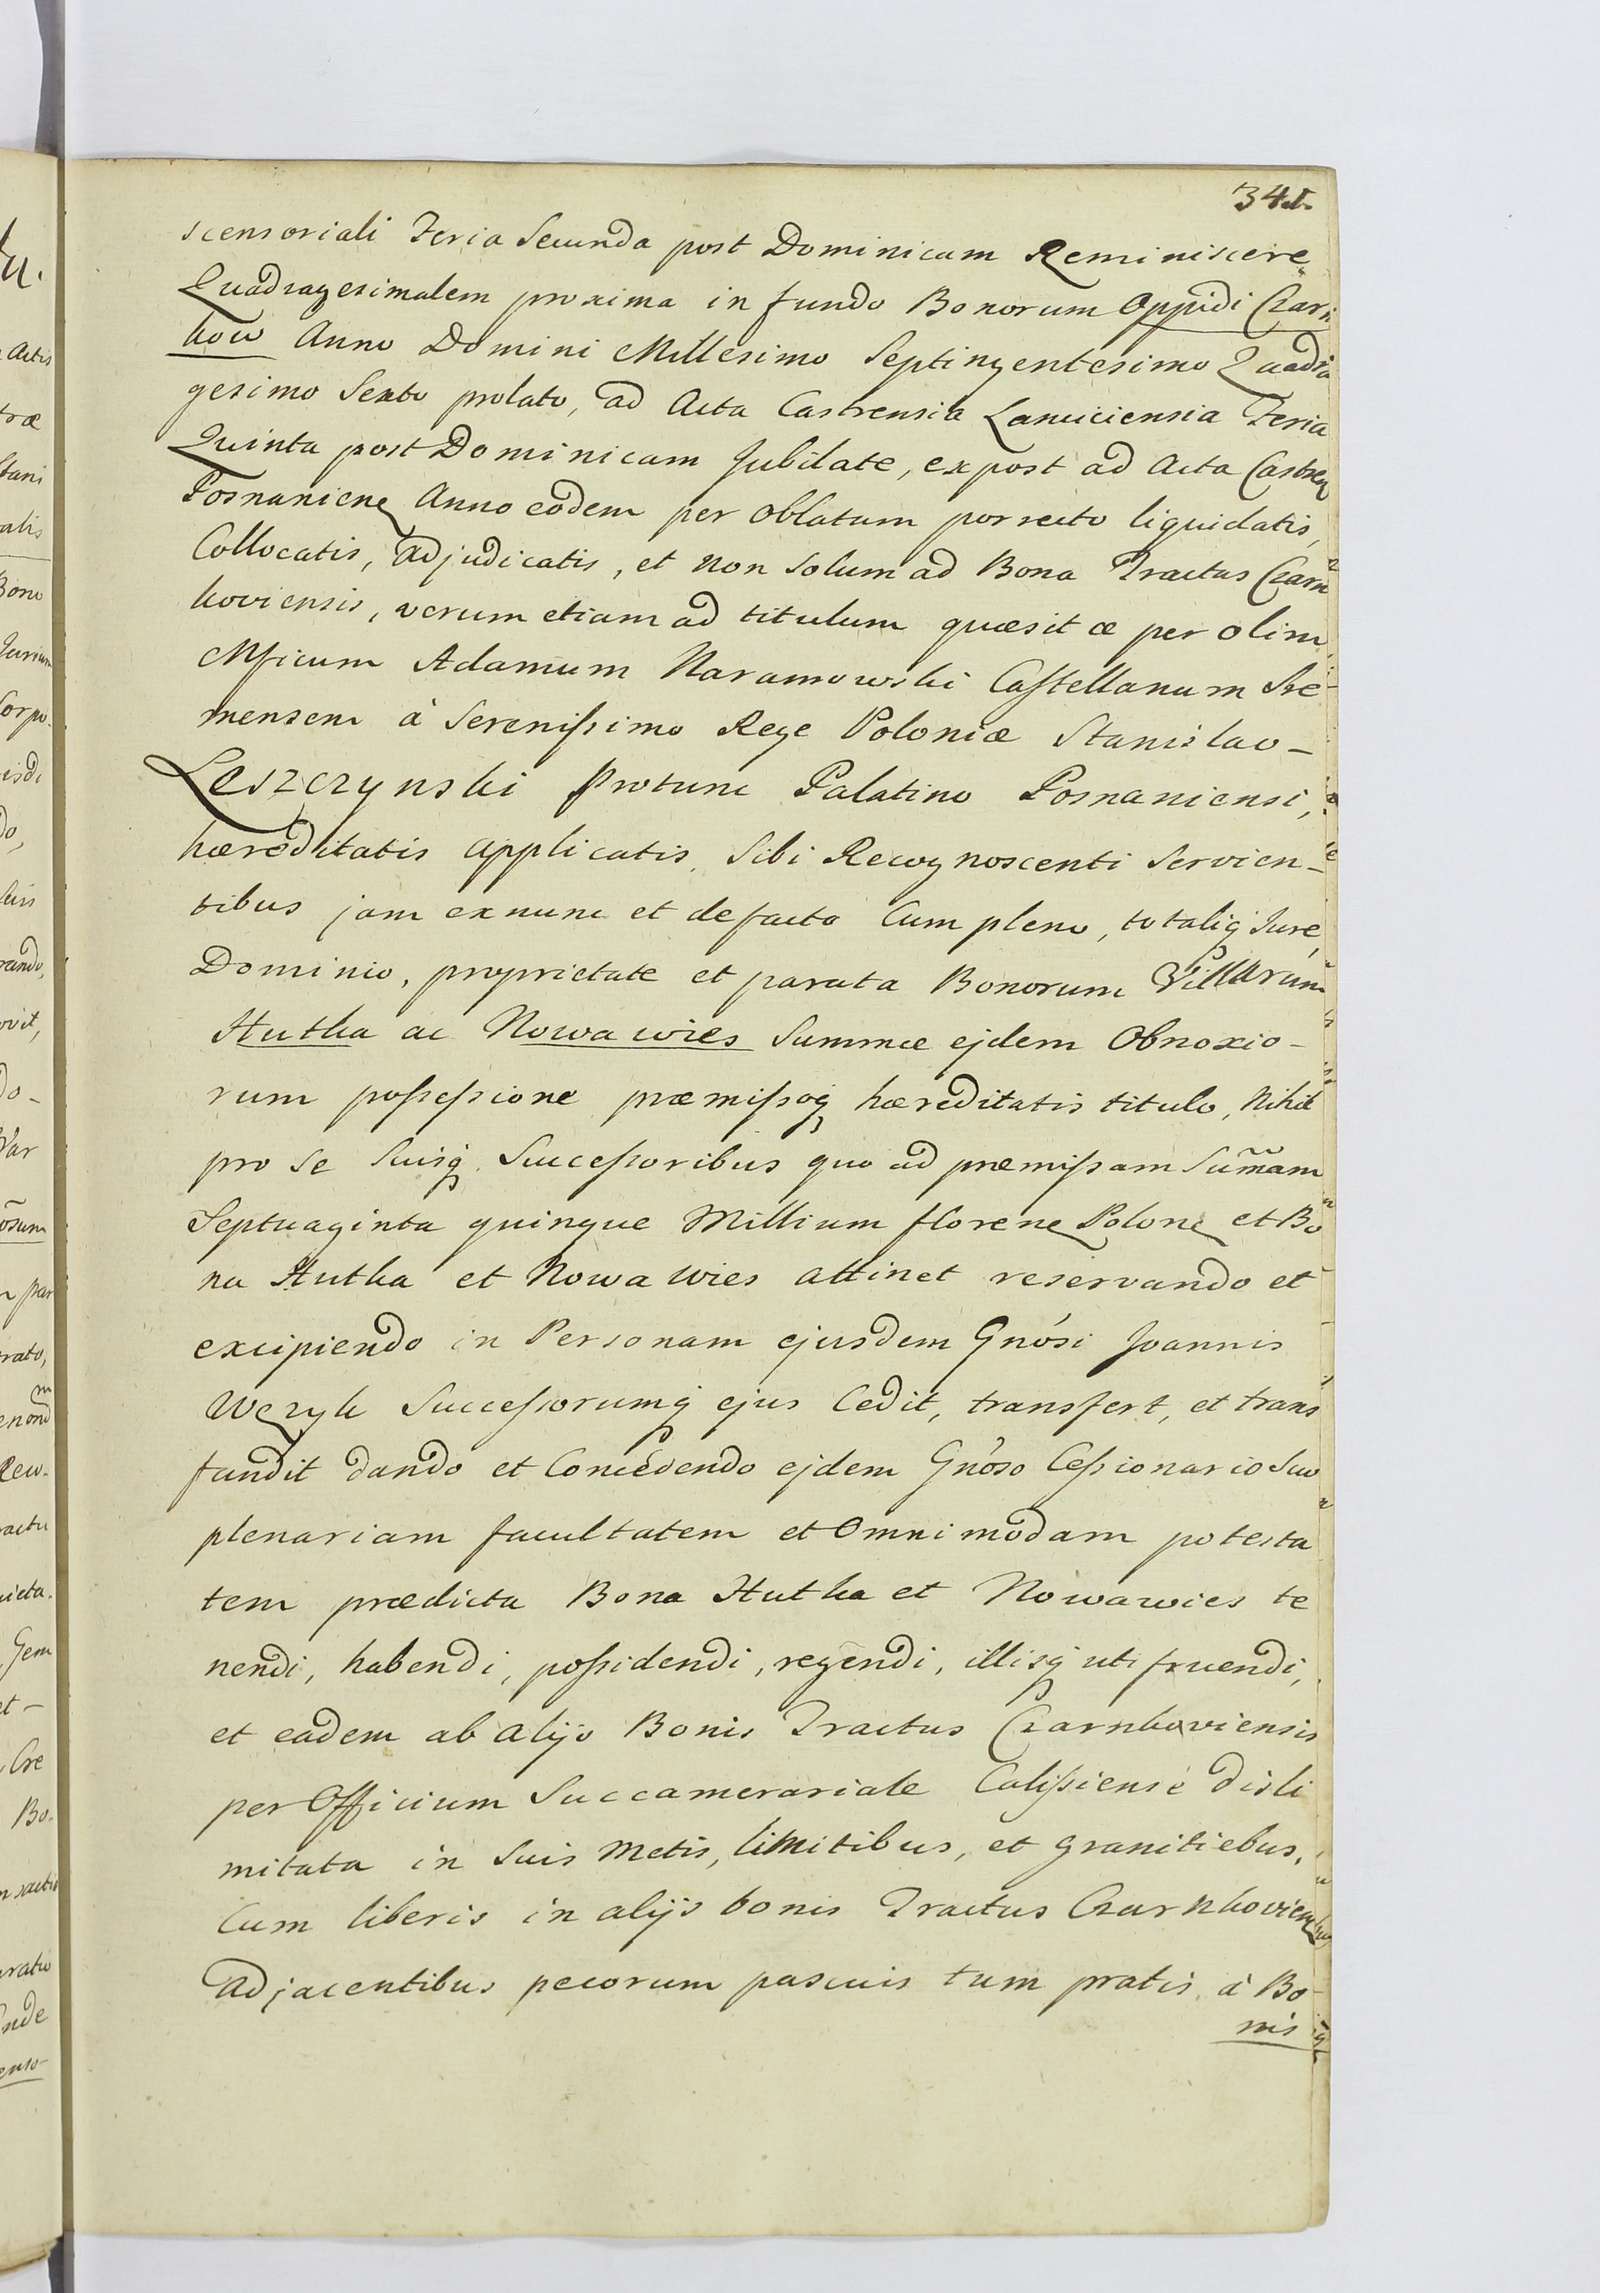 34
scensoriali Feria Secunda post Dominicam Reminiscere
Quadragesimalem proxima in fundo Bonorum Oppidi Czarn
kow Anno Domini Millesimo Septingentesimo Quadra
gesimo Sexto prolato, ad Acta Castrensia Lanciciensia Feria
Quinta post Dominicam Jubilate, expost ad Acta Castren
Posnanien Anno eodem per Oblatam porrecto liquidatis,
Collocatis, adjudicatis, et non Solum ad Bona Tractus Czarn
koviensis, verum etiam ad titulum quæsitæ per olim
Mficum Adamum Naramowski Castellanum Sre
mensem à Serenissimo Rege Poloniæ Stanislao-
Leszczynski protunc Palatino Posnaniensi,
hæreditatis applicatis, Sibi Recognoscenti Servien-
tibus jam exnunc et de facto Cum pleno, totaliq Jure,
Dominio, proprietate et parata Bonorum Villarum
Hutka ac Nowa wies Summæ ejdem Obnoxio-
rum possessione præmissoq hæreditatis titulo, Nihil
pro Se Suisq Successoribus quo ad præmissam Sum̃am
Septuaginta quinque Millium floren Polon et Bo
na Hutka et Nowa Wies attinet reservando et
excipiendo in Personam ejusdem Gnósi Joannis
Wezyk Successorumq ejus Cedit, transfert, et trans
fundit dando et Concedendo ejdem Gnóso Cessionario Suo
plenariam facultatem et Omnimodam potesta
tem prædicta Bona Hutka et Nowawies te
nendi, habendi, possidendi, regendi, illisq uti fruendi,
et eadem ab alijs Bonis Tractus Czarnkoviensis
per Officium Succamerariale Calissiense disli
mitata in Suis Metis, limitibus, et granitiebus,
Cum liberis in alijs bonis Tractus Czarnkovien
adjacentibus pecorum pascuis tum pratis à Bo
nis